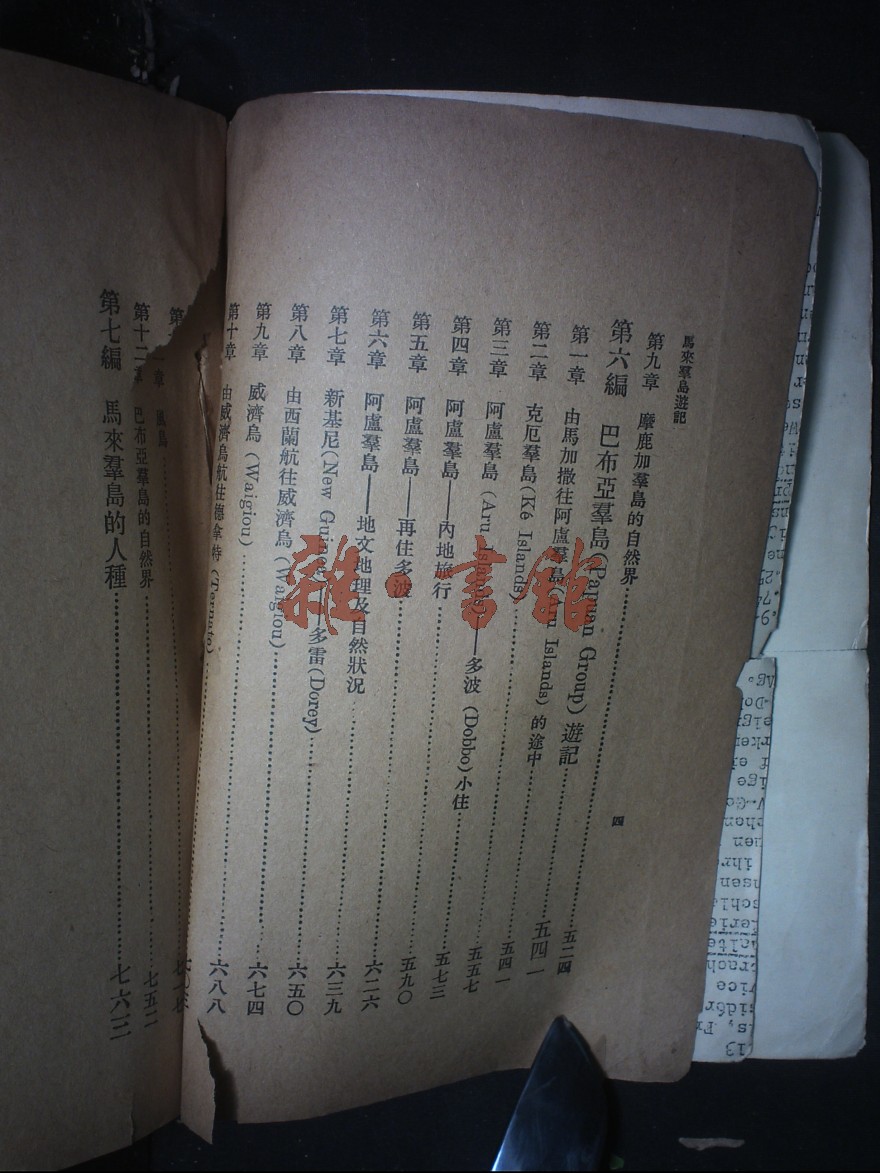 馬來羣島遊記
四
第九章 摩鹿加羣島的自然界……五二四
第六編 巴布亞羣島(Papuan Group) 遊記……五四一
第一章 由馬加撒往阿盧羣島(Aru Islands) 的途中……五四一
第二章 克厄羣島(Ké Islands)……五五七
第三章 阿盧羣島 (Aru Islands)——多波 (Dobbo)小住……五七三
第四章 阿盧羣島——內地旅行……五九〇
第五章 阿盧羣島——再住多波……六二六
第六章 阿盧羣島——地文地理及自然狀況……六三九
第七章 新基尼(New Guinea)——多雷(Dorey)……六五〇
第八章 由西蘭航往威濟烏(Waigiou)……六七四
第九章 威濟烏 (Waigiou)……六八八
第十章 由威濟烏航往德拿特 (Ternate)……
第 一章 鳥……
第十二章 巴布亞羣島的自然界……七五二
第七編 馬來羣島的人種……七六三
雜·書館